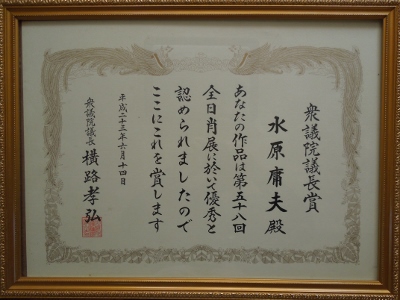 衆議院議長賞
水原庸夫殿
あなたの作品は第五十八回
全日肖展に於いて優秀と
認められましたので
ここにこれを賞します
平成二十三年六月十四日
衆議院議長 横路孝弘